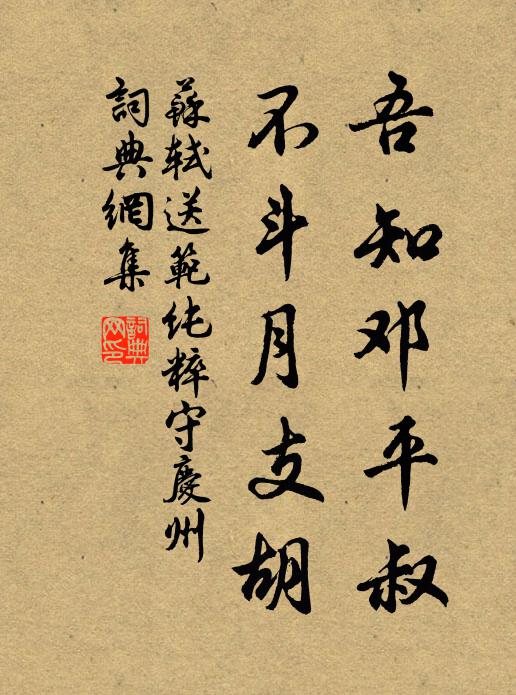 吾知邓平叔
不斗月支胡
蘇軾送範純粹守慶州
詞典網集
詞典
网印